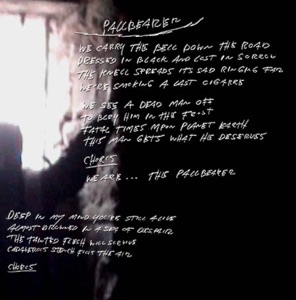 PALLBEARER
WE CARRY THE BELL DOWN THE ROAD
DRESSED IN BLACK AND LOST IN SORROW
THE KNELL SPREADS ITS SAD RINGING FAR
WE'RE SMOKING A LAST CIGARRE
WE SEE A DEAD MAN OFF
TO BURY HIM IN THE FROST
FATAL TIMES UPON PLANET EARTH
THIS MAN GETS WHAT HE DESERVES
CHORUS
WE ARE ... THE PALLBEARER
DEEP IN MY MIND YOU'RE STILL ALIVE
ALMOST DROWNED IN A SEA OF DESPAIR
THE TAINTED FLESH WILL
CADAVEROUS STENCH FILLS THE AIR
CHORUS